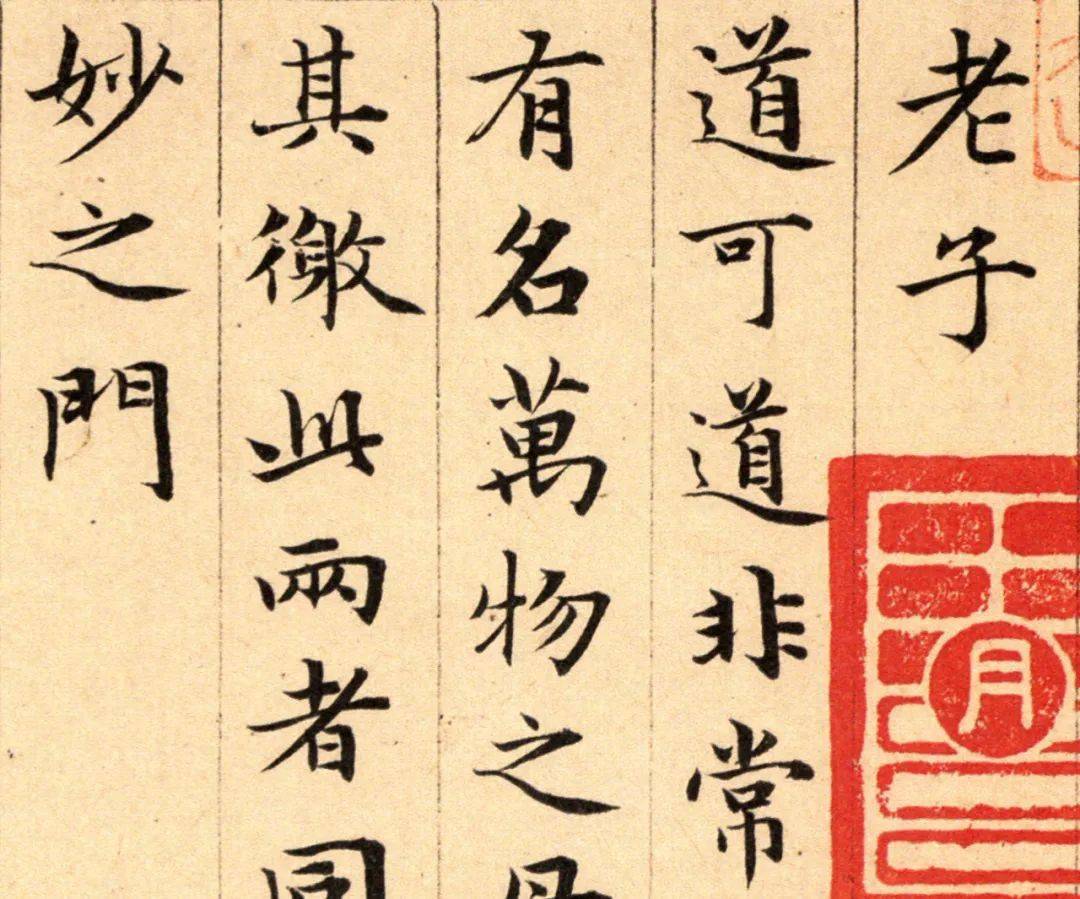 老子
道可道非常
有名萬物之母
其徼此兩者同
妙之門
月